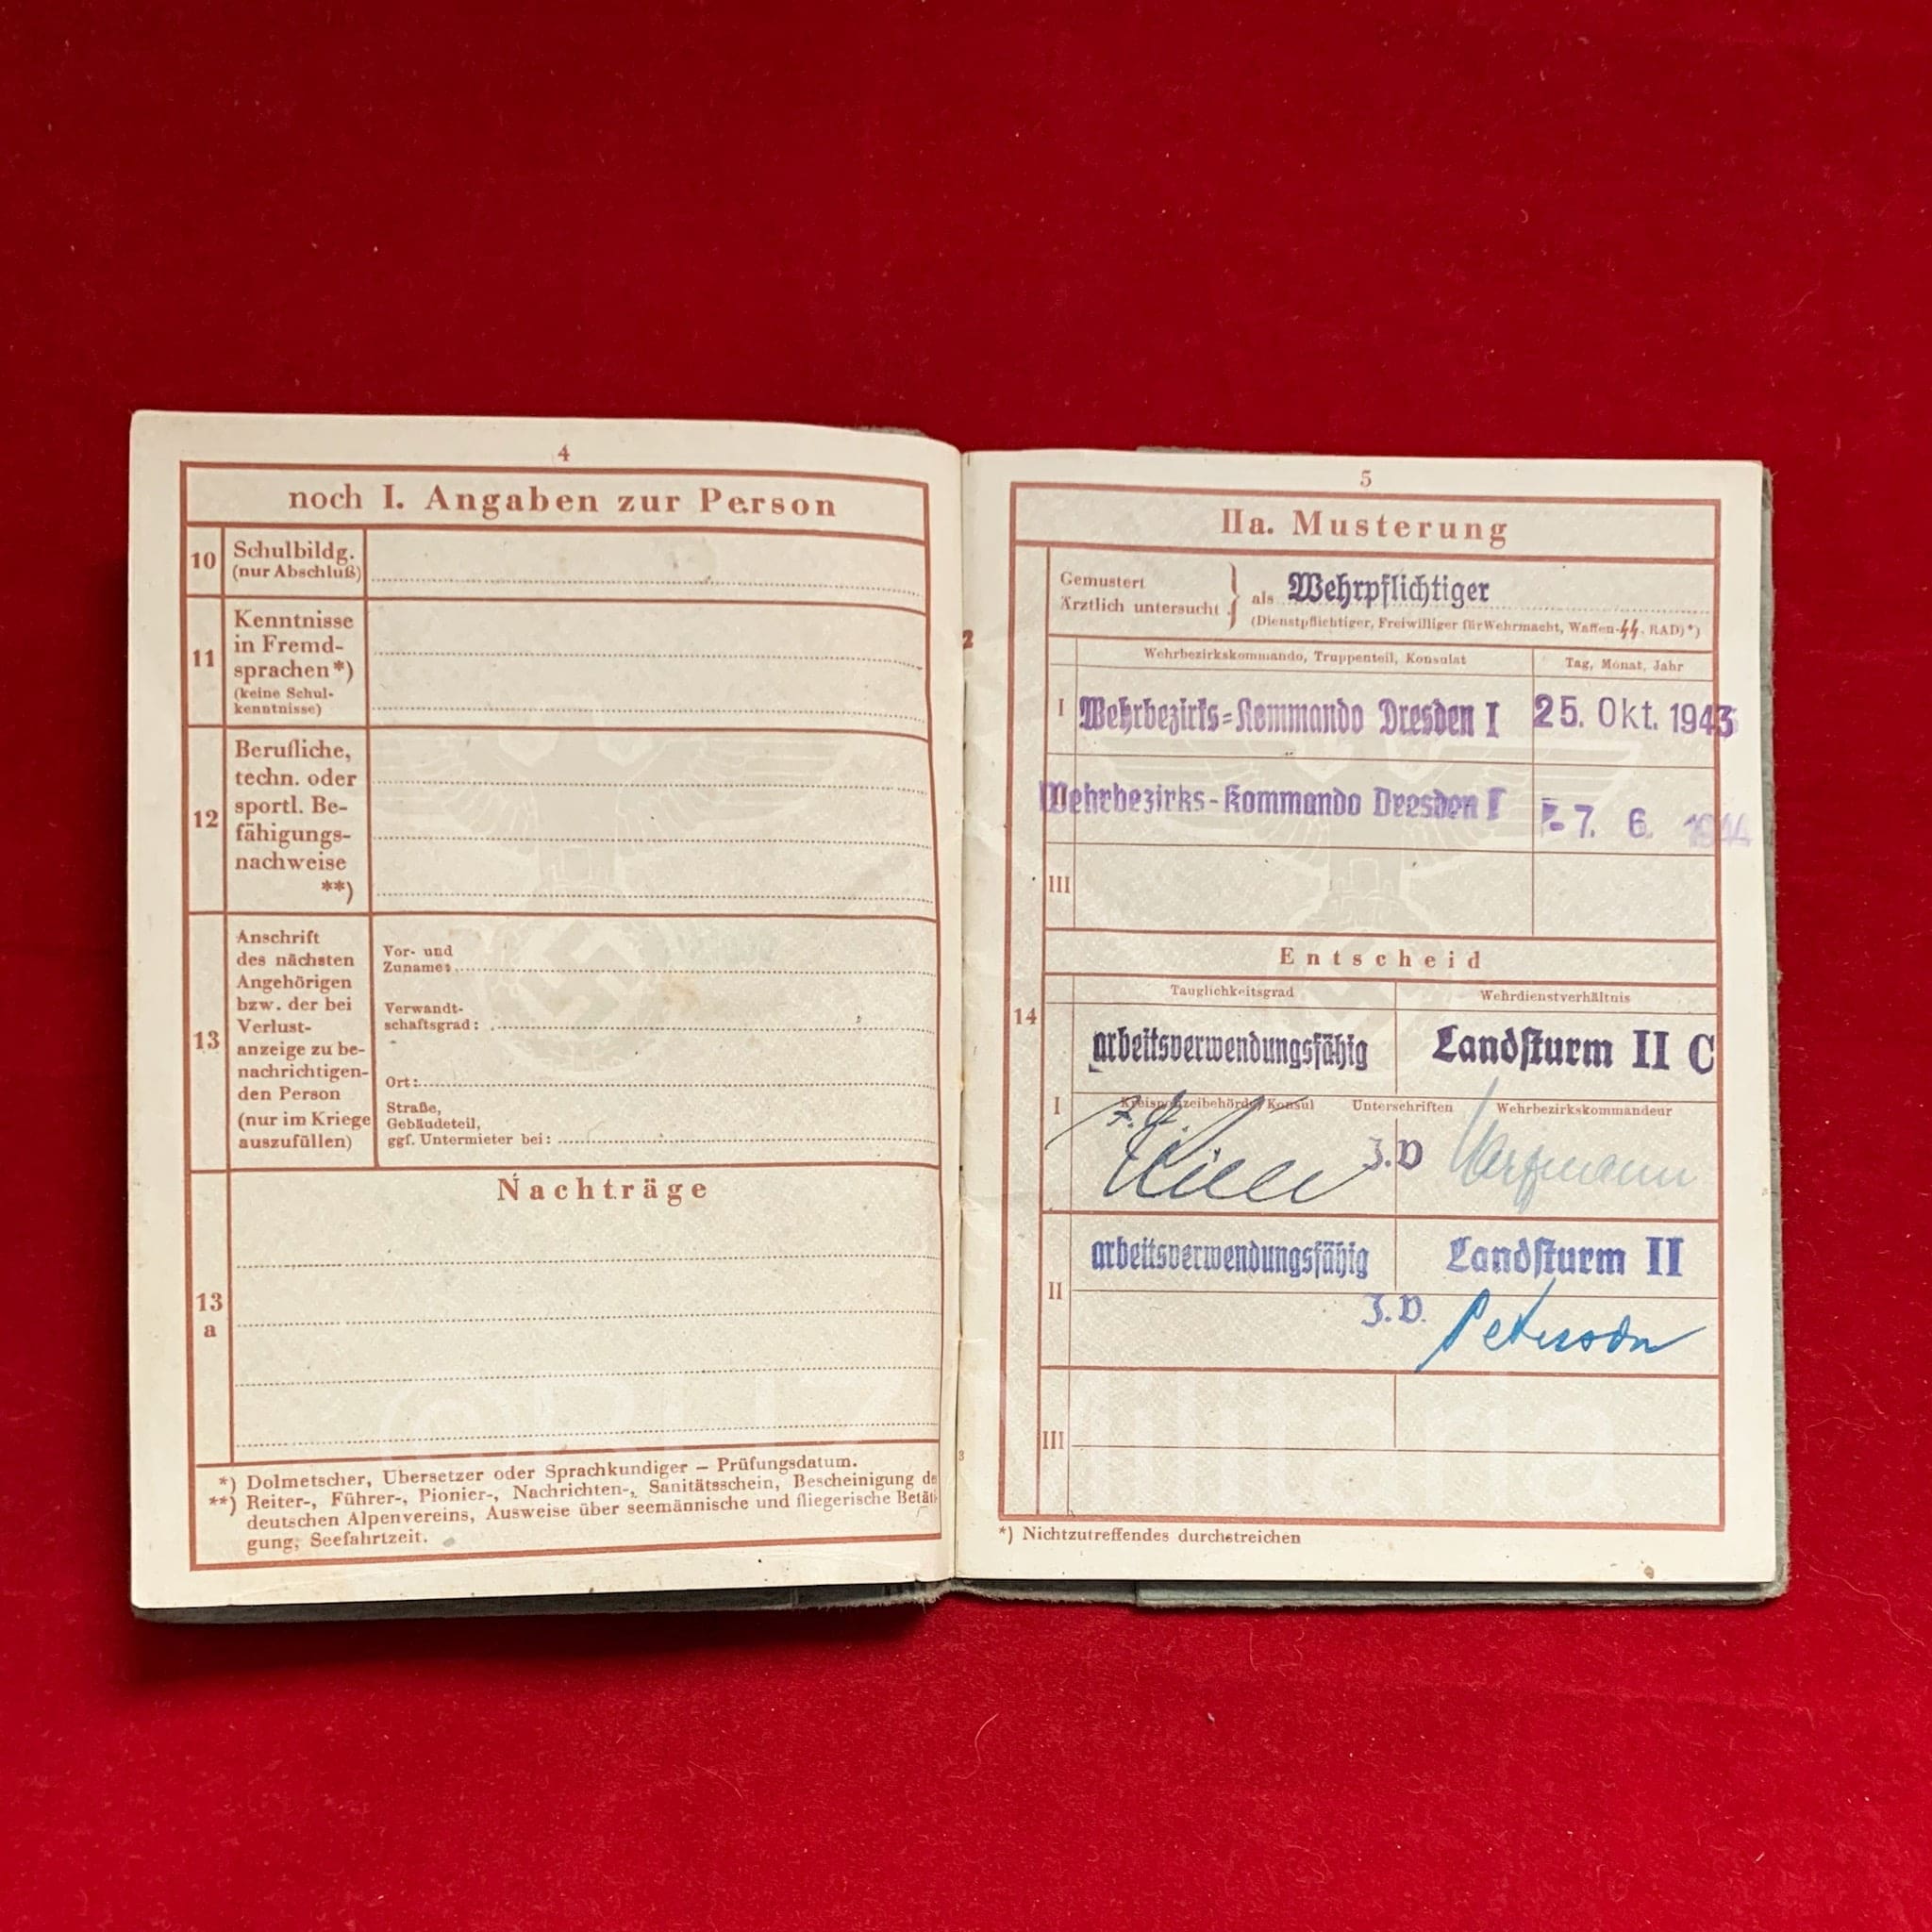 4
noch I. Angaben zur Person
10
Schulbildg.
(nur Abschluß)
11
Kenntnisse
in Fremd-
sprachen*)
(keine Schul-
kenntnisse)
12
Berufliche,
techn. oder
sportl. Be-
fähigungs-
nachweise
**)
13
Anschrift
des nächsten
Angehörigen
bzw. der bei
Verlust-
anzeige zu be-
nachrichtigen-
den Person
(nur im Kriege
auszufüllen)
Vor- und
Zuname:
Verwandt-
schaftsgrad:
Ort:
Straße,
Gebäudeteil,
ggf. Untermieter bei:
Nachträge
13
a
*) Dolmetscher, Übersetzer oder Sprachkundiger – Prüfungsdatum.
**) Reiter-, Führer-, Pionier-, Nachrichten-, Sanitätsschein, Bescheinigung de
deutschen Alpenvereins, Ausweise über seemännische und fliegerische Betäti-
gung, Seefahrtzeit.
2
3
5
IIa. Musterung
Gemustert
Ärztlich untersucht
als Wehrpflichtiger
(Dienstpflichtiger, Freiwilliger für Wehrmacht, Waffen-SS, RAD)*)
Wehrbezirkskommando, Truppenteil, Konsulat
Tag, Monat, Jahr
I
Wehrbezirks=Kommando Dresden I
25. Okt. 1943
Wehrbezirks-Kommando Dresden I
-7. 6. 1944
III
Entscheid
14
Tauglichkeitsgrad
Wehrdienstverhältnis
I
arbeitsverwendungsfähig
Landsturm II C
Kreispolizeibehörde, Konsul
Unterschriften
Wehrbezirkskommandeur
J.V
II
arbeitsverwendungsfähig
Landsturm II
J.V.
III
*) Nichtzutreffendes durchstreichen